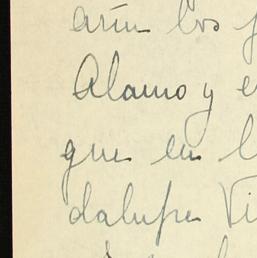 aún los
Alamo y e
que en l
dalupe Vi